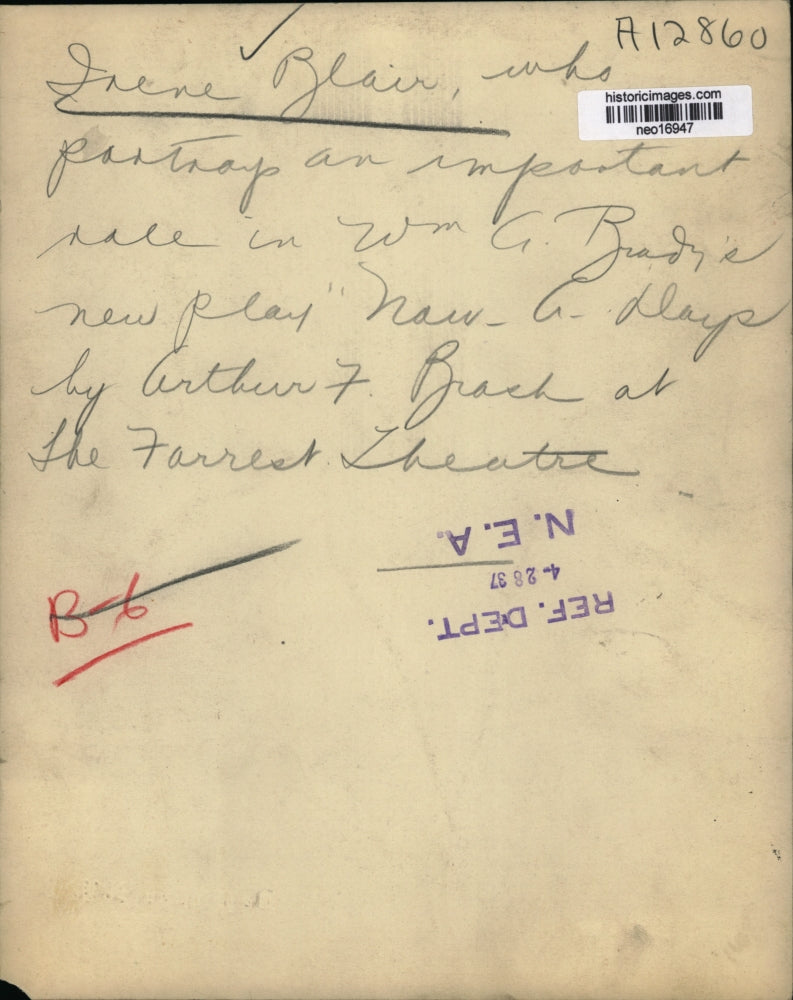 A12860
Irene Blair, who
historicimages.com
neo16947
portrays an important
role in Wm A. Brady's
new play "Now-A-Days
by Arthur F. Brash at
The Forrest Theatre
N.E.A.
4-28 37
REF. DEPT.
B-6